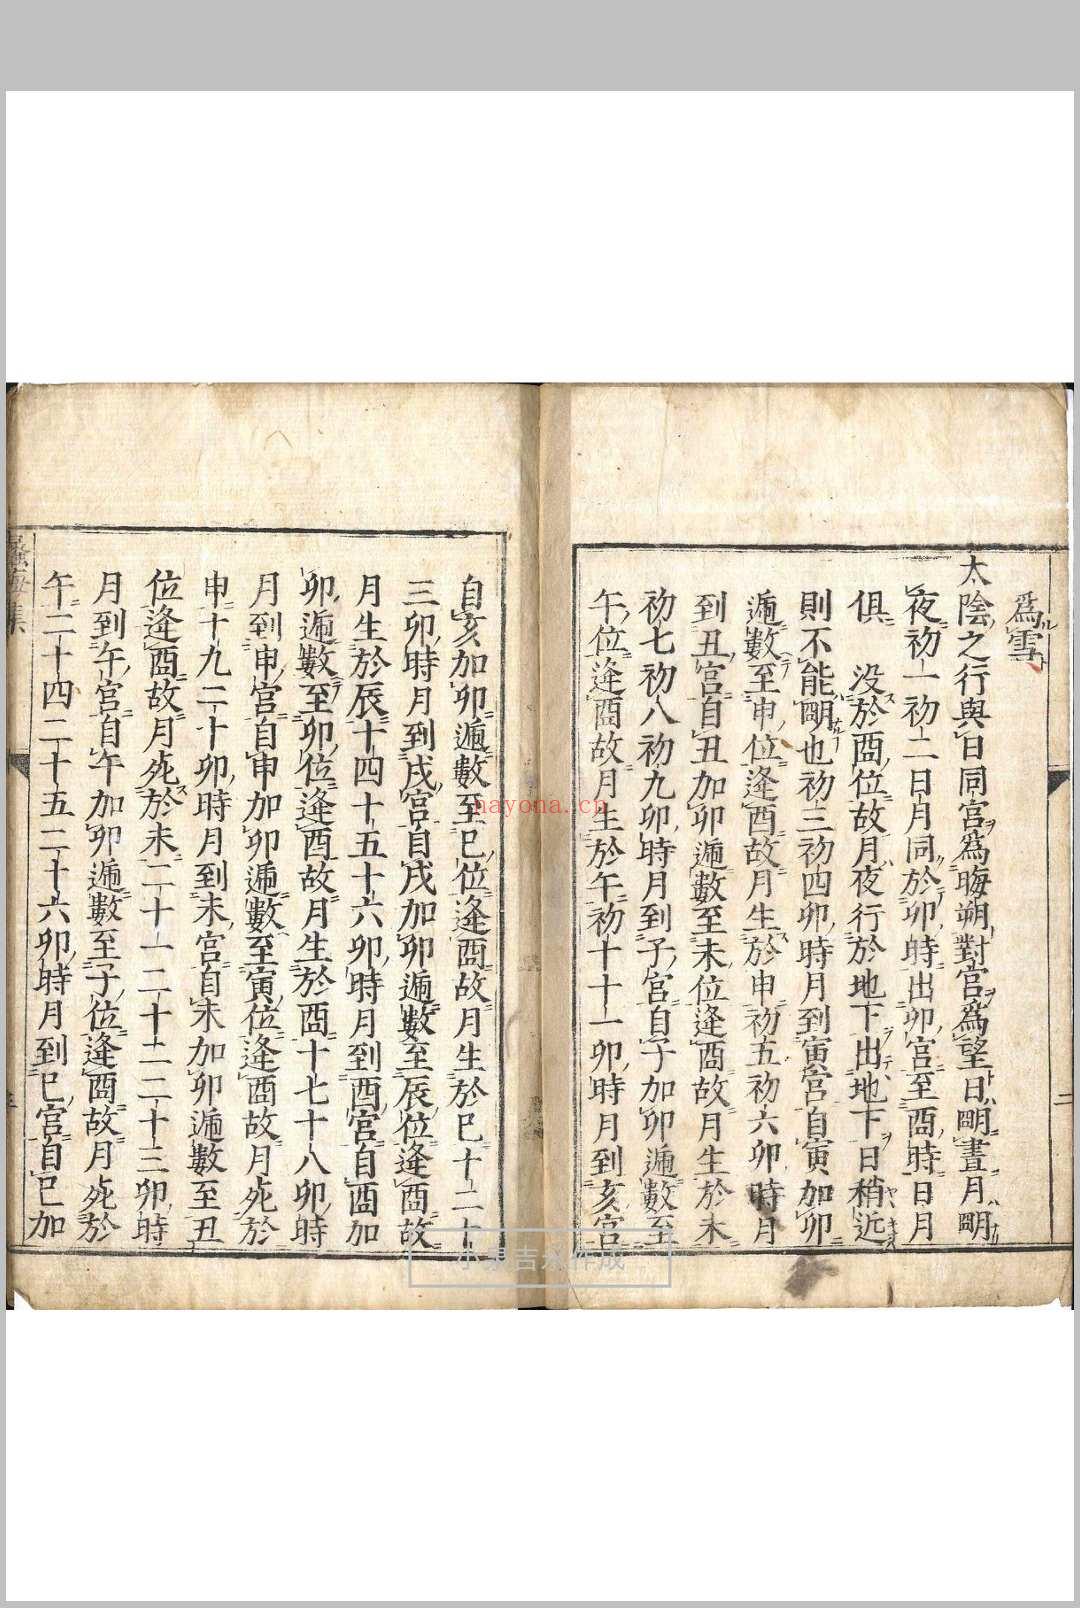 爲雪
太陰之行與日同宮爲晦朔對宮爲望日明晝月明
夜初一初二日月同於卯時出卯宮至酉時日月
俱 沒於酉位故月夜行於地下出地下日稍近
則不能明也初三初四卯時月到寅宮自寅加卯
遍數至申位逢酉故月生於申初五初六卯時月
到丑宮自丑加卯遍數至未位逢酉故月生於未
初七初八初九卯時月到子宮自子加卯遍數至
午位逢酉故月生於午初十十一卯時月到亥宮
二
自亥加卯遍數至巳位逢酉故月生於巳十二十
三卯時月到戌宮自戌加卯遍數至辰位逢酉故
月生於辰十四十五十六卯時月到酉宮自酉加
卯遍數至卯位逢酉故月生於酉十七十八卯時
月到申宮自申加卯遍數至寅位逢酉故月死於
申十九二十卯時月到未宮自未加卯遍數至丑
位逢酉故月死於未二十一二十二二十三卯時
月到午宮自午加卯遍數至子位逢酉故月死於
午二十四二十五二十六卯時月到巳宮自巳加
集
nayona.cn